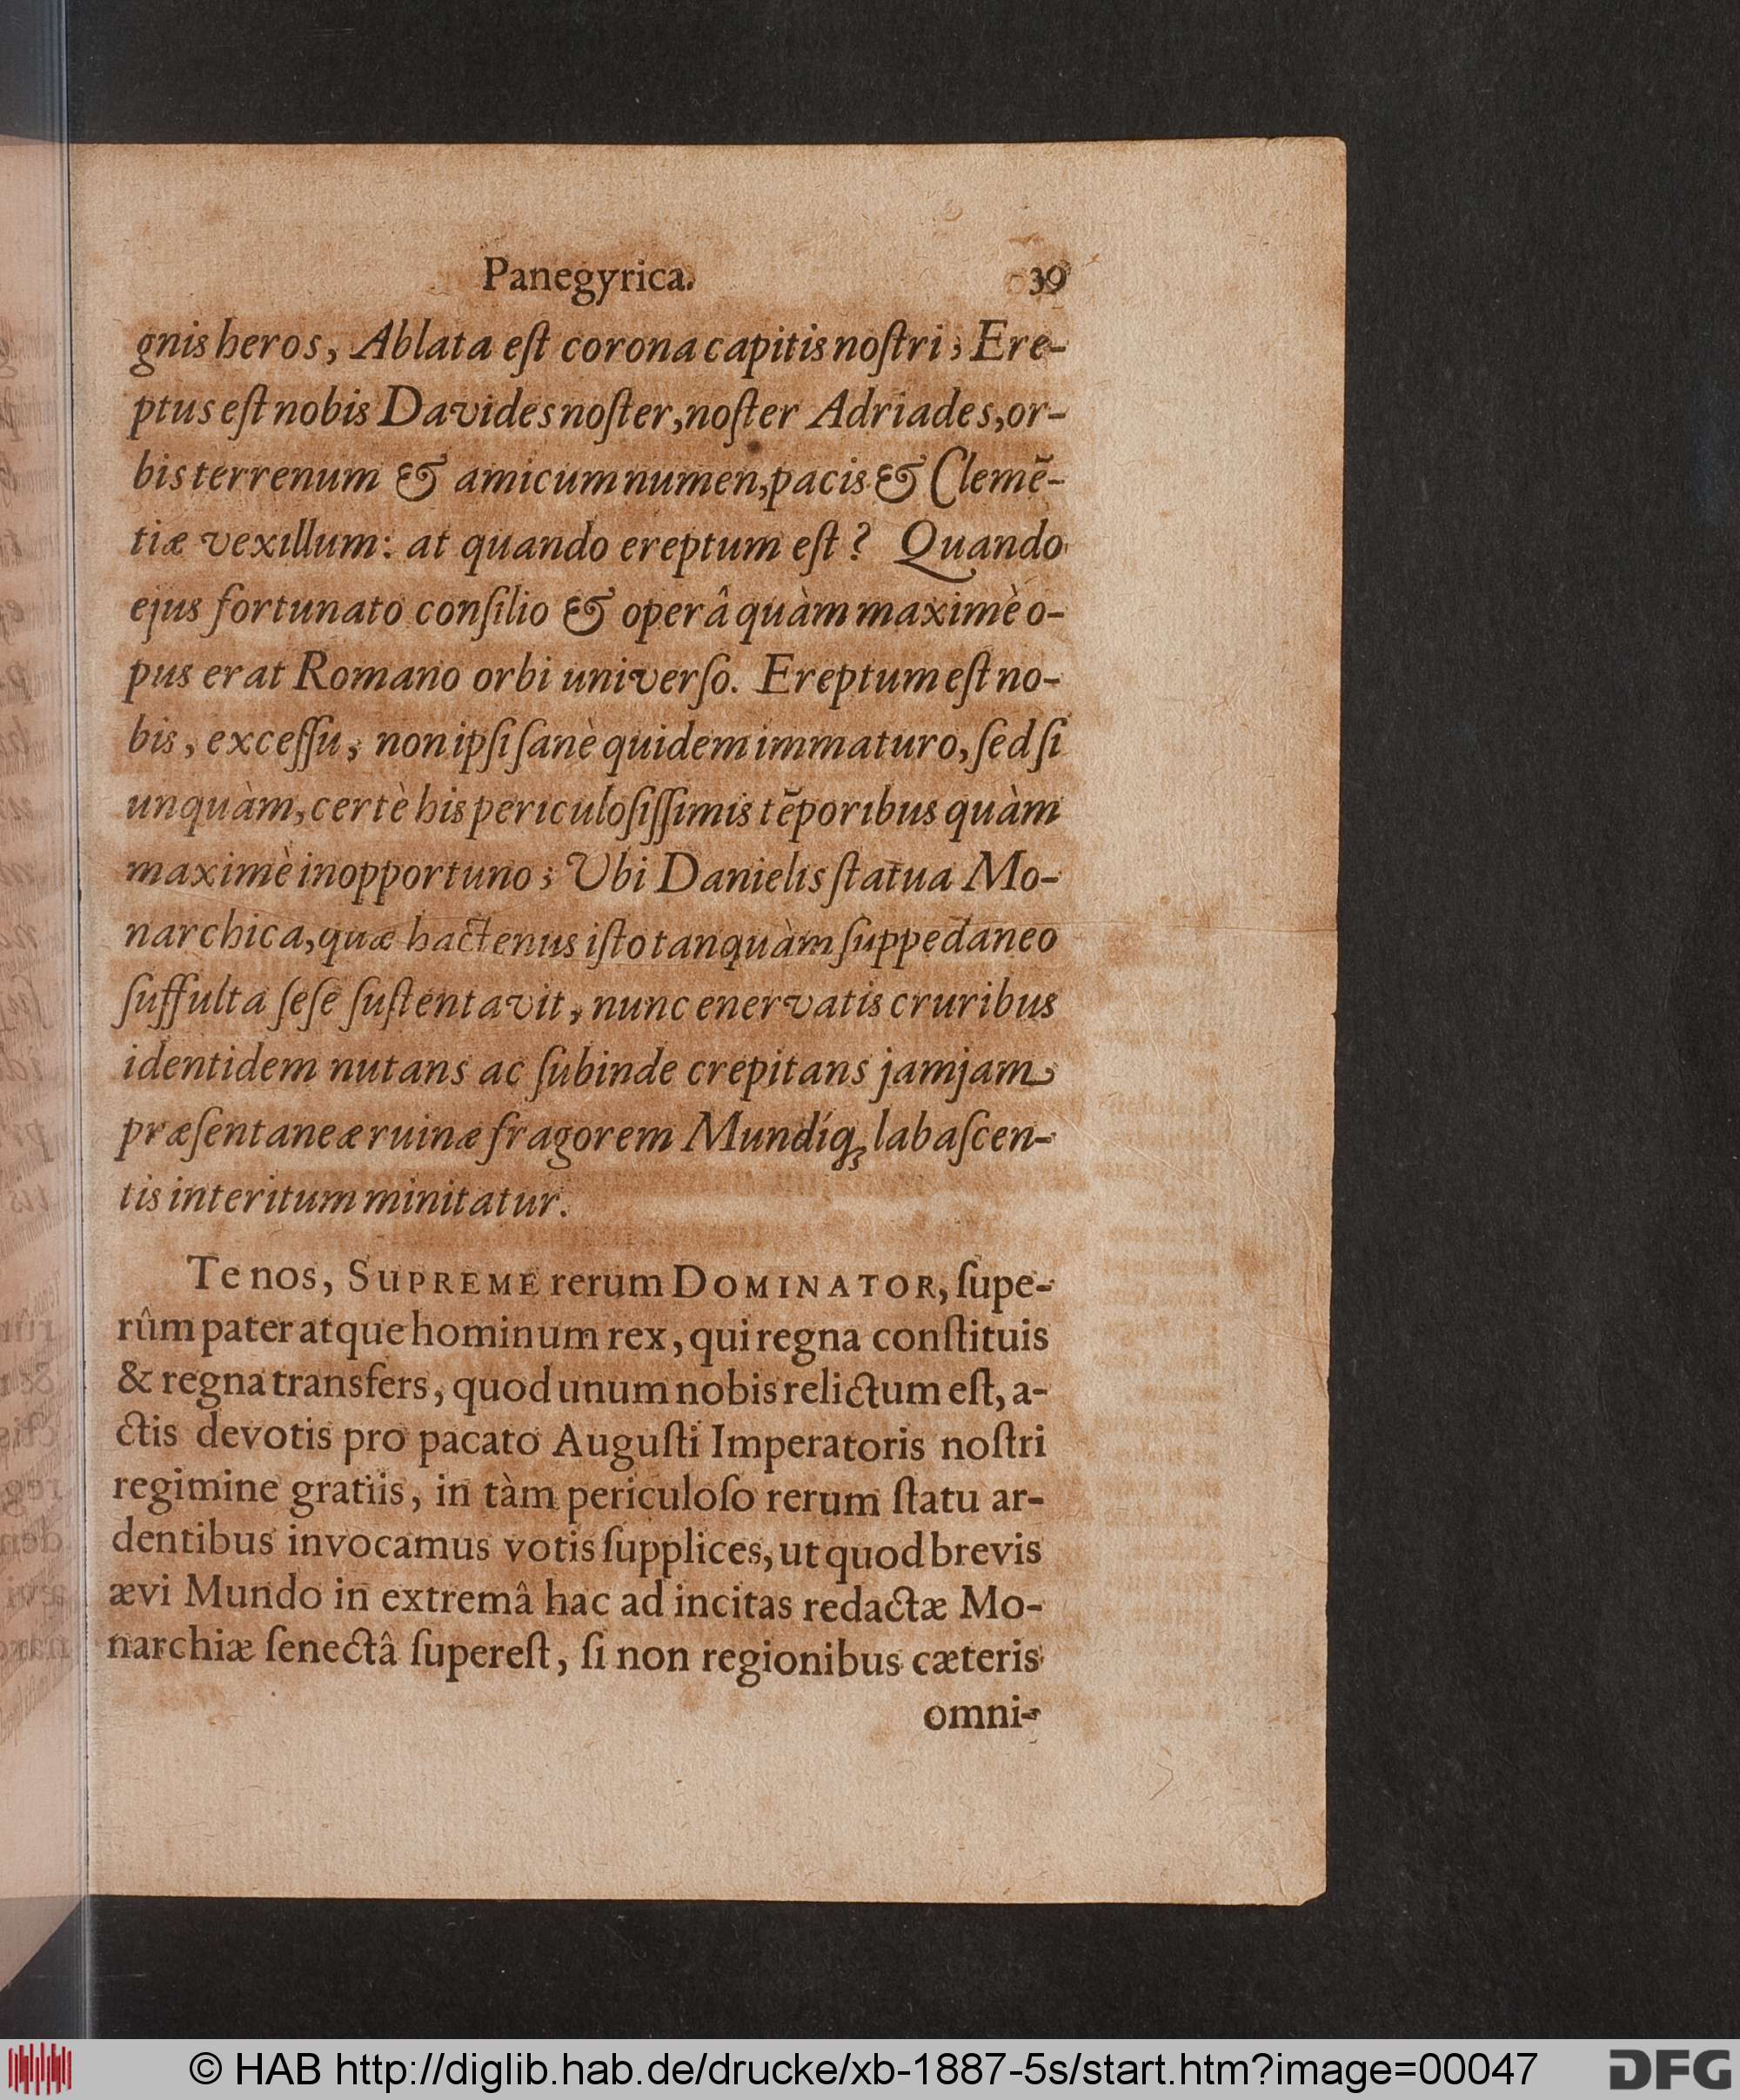 Panegyrica. 39
gnis heros, Ablata eſt corona capitis noſtri; Ere-
ptus eſt nobis Davides noſter, noſter Adriades, or-
bis terrenum & amicum numen, pacis & Clemẽ-
tiæ vexillum: at quando ereptum eſt? Quando
ejus fortunato conſilio & operâ quàm maximè o-
pus erat Romano orbi univerſo. Ereptum eſt no-
bis, exceſſu, non ipſi ſanè quidem immaturo, ſed ſi
unquàm, certè his periculoſiſſimis tẽporibus quàm
maximè inopportuno; Ubi Danielis ſtatua Mo-
narchica, quæ hactenus iſto tanquàm ſuppedaneo
ſuffulta ſeſe ſuſtentavit, nunc enervatis cruribus
identidem nutans ac ſubinde crepitans jamjam
præſentaneæ ruinæ fragorem Mundíq; labaſcen-
tis interitum minitatur.
Te nos, SUPREME rerum DOMINATOR, ſupe-
rûm pater atque hominum rex, qui regna conſtituis
& regna transfers, quod unum nobis relictum eſt, a-
ctis devotis pro pacato Auguſti Imperatoris noſtri
regimine gratiis, in tàm periculoſo rerum ſtatu ar-
dentibus invocamus votis ſupplices, ut quod brevis
ævi Mundo in extremâ hac ad incitas redactæ Mo-
narchiæ ſenectâ ſupereſt, ſi non regionibus cæteris
omni-
© HAB http://diglib.hab.de/drucke/xb-1887-5s/start.htm?image=00047
DFG